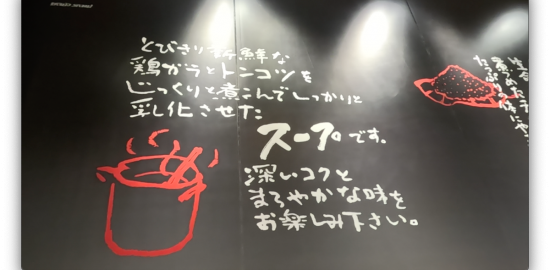 とびきり新鮮な
鶏ガラとトンコツを
じっくりと煮こんでしっかりと
乳化させた
スープです。
深いコクと
まろやかな味を
お楽しみ下さい。